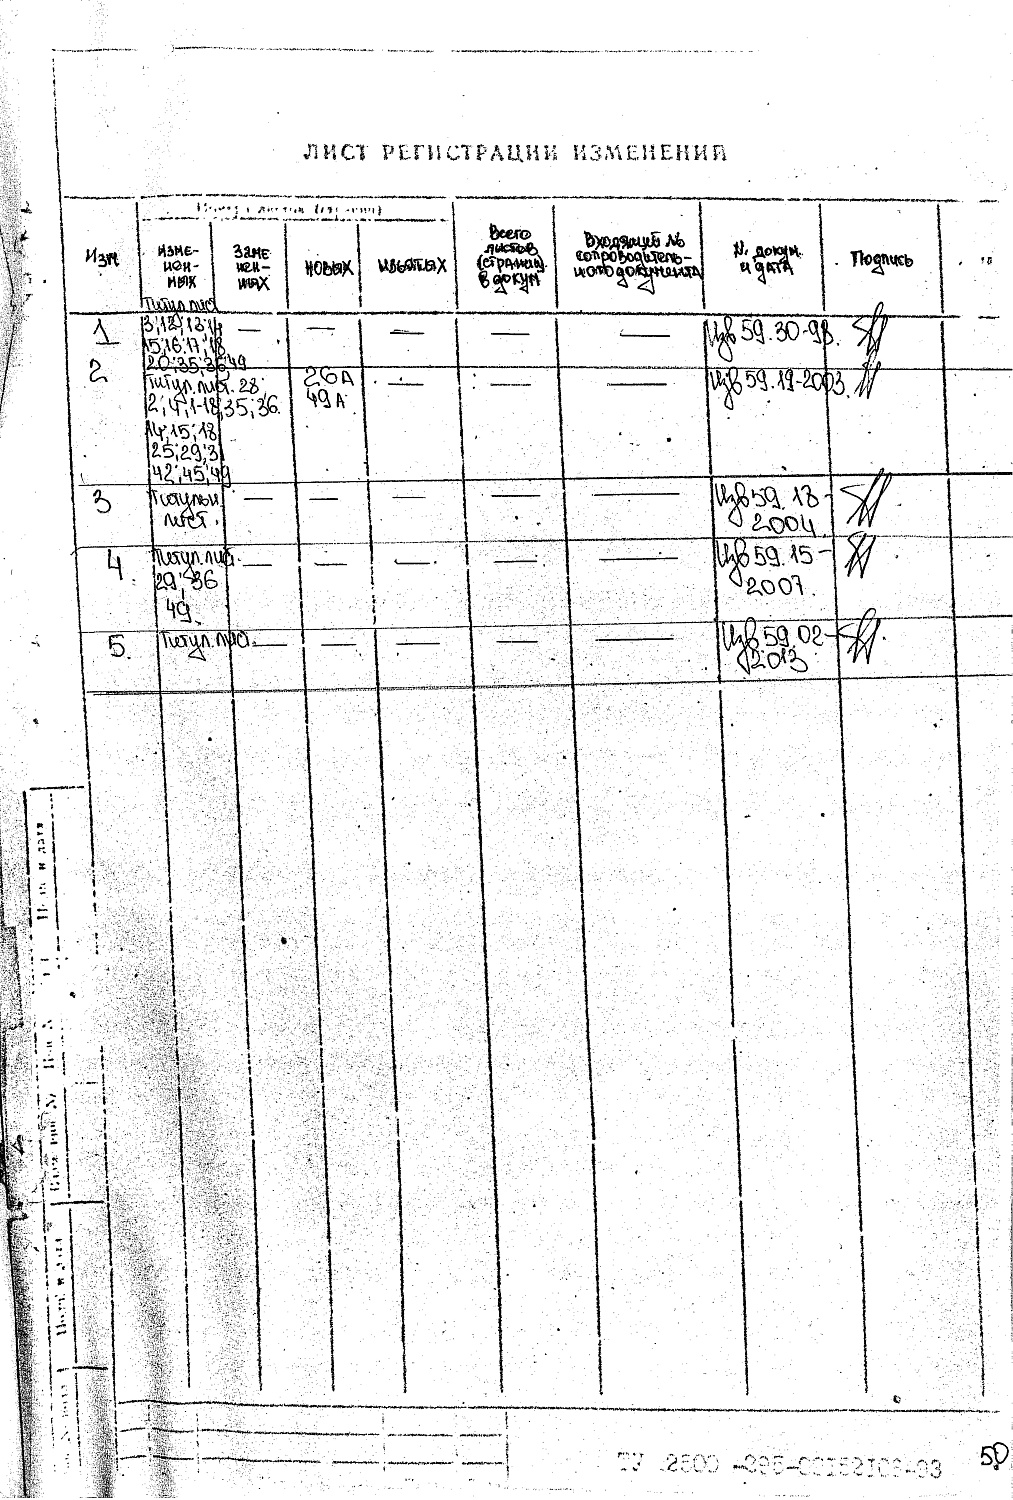 ЛИСТ РЕГИСТРАЦИИ ИЗМЕНЕНИЙ
Изм
Изме-
нен-
ных
Заме
нен-
ных
новых
изъятых
Всего
листов
(страниц)
в докум
Входящий №
сопроводитель-
ного документа
N. докум.
и дата
Подпись
1
Титул лист
3;12;13;14
15;16;17;18
20;35;36;49
— — — — —
Изв 59.30-98.
2
Титул. лист. 28;
2;4;1-18;35;36.
14;15;18
25;29;31
42;45;49
26А
49А
— — —
Изв 59.19-2003.
3
Титульн
лист.
— — — — —
Изв 59.13-
2004
4
Титул. лист.
29; 36
49.
— — — — —
Изв 59.15-
2007.
5.
Титул. лист.
— — — — —
Изв 59.02-
2013
Подп. и дата
50